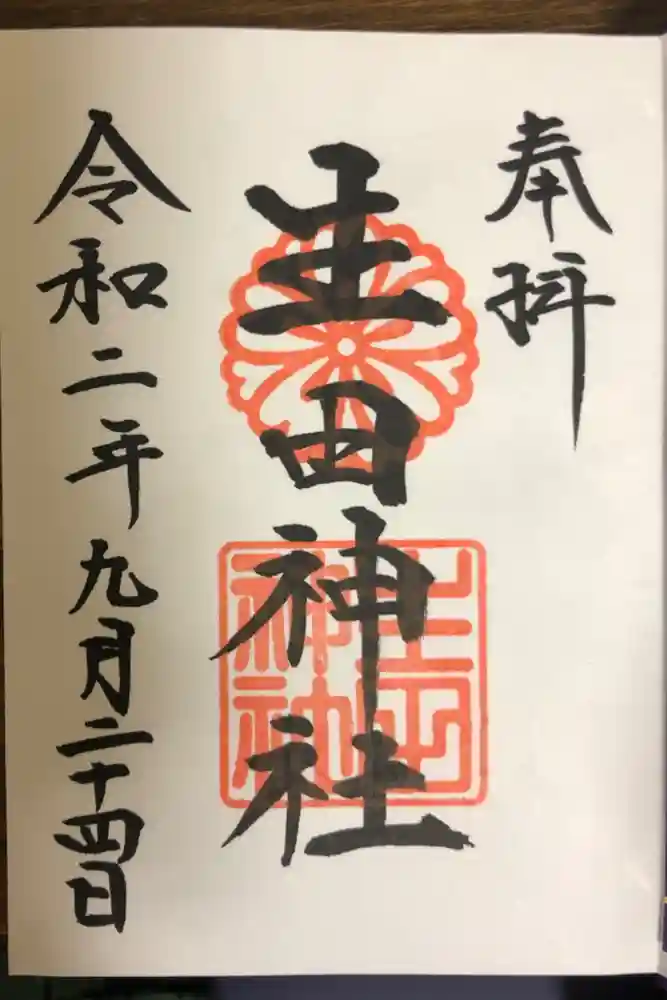 奉拝
生田神社
生田神社
令和二年九月二十四日